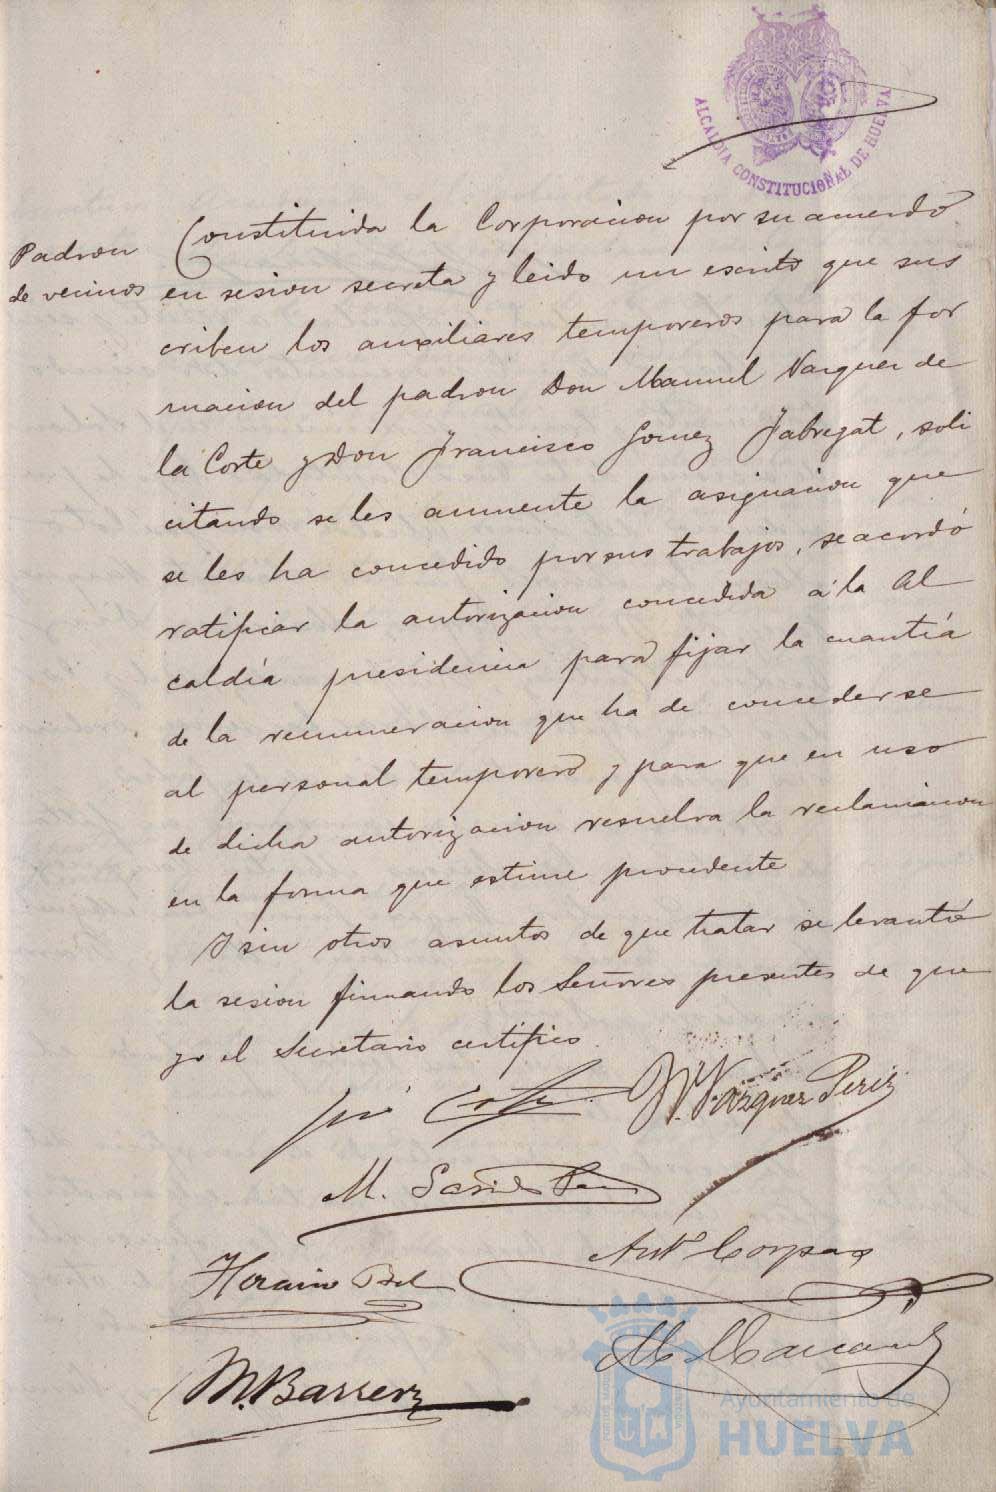 ALCALDIA CONSTITUCIONAL DE HUELVA
Padron
de vecinos
Constituida la Corporacion por su acuerdo
en sesion secreta y leido un escrito que sus
criben los auxiliares temporeros para la for
macion del padron Don Manuel Vazquez de
la Corte y Don Francisco Gomez Jabregat, soli
citando se les aumente la asignacion que
se les ha concedido por sus trabajos, se acordó
ratificar la autorizacion concedida á la Al
caldía presidencia para fijar la cuantía
de la remuneracion que ha de concederse
al personal temporero y para que en uso
de dicha autorizacion resuelva la reclamacion
en la forma que estime procedente
Y sin otros asuntos de que tratar se levantó
la sesion firmando los Señores presentes de que
yo el Secretario certifico.
José
Vazquez Periz
M.
Antº Corpas
Horacio Bel
M.
M. Barrera
Ayuntamiento de
HUELVA